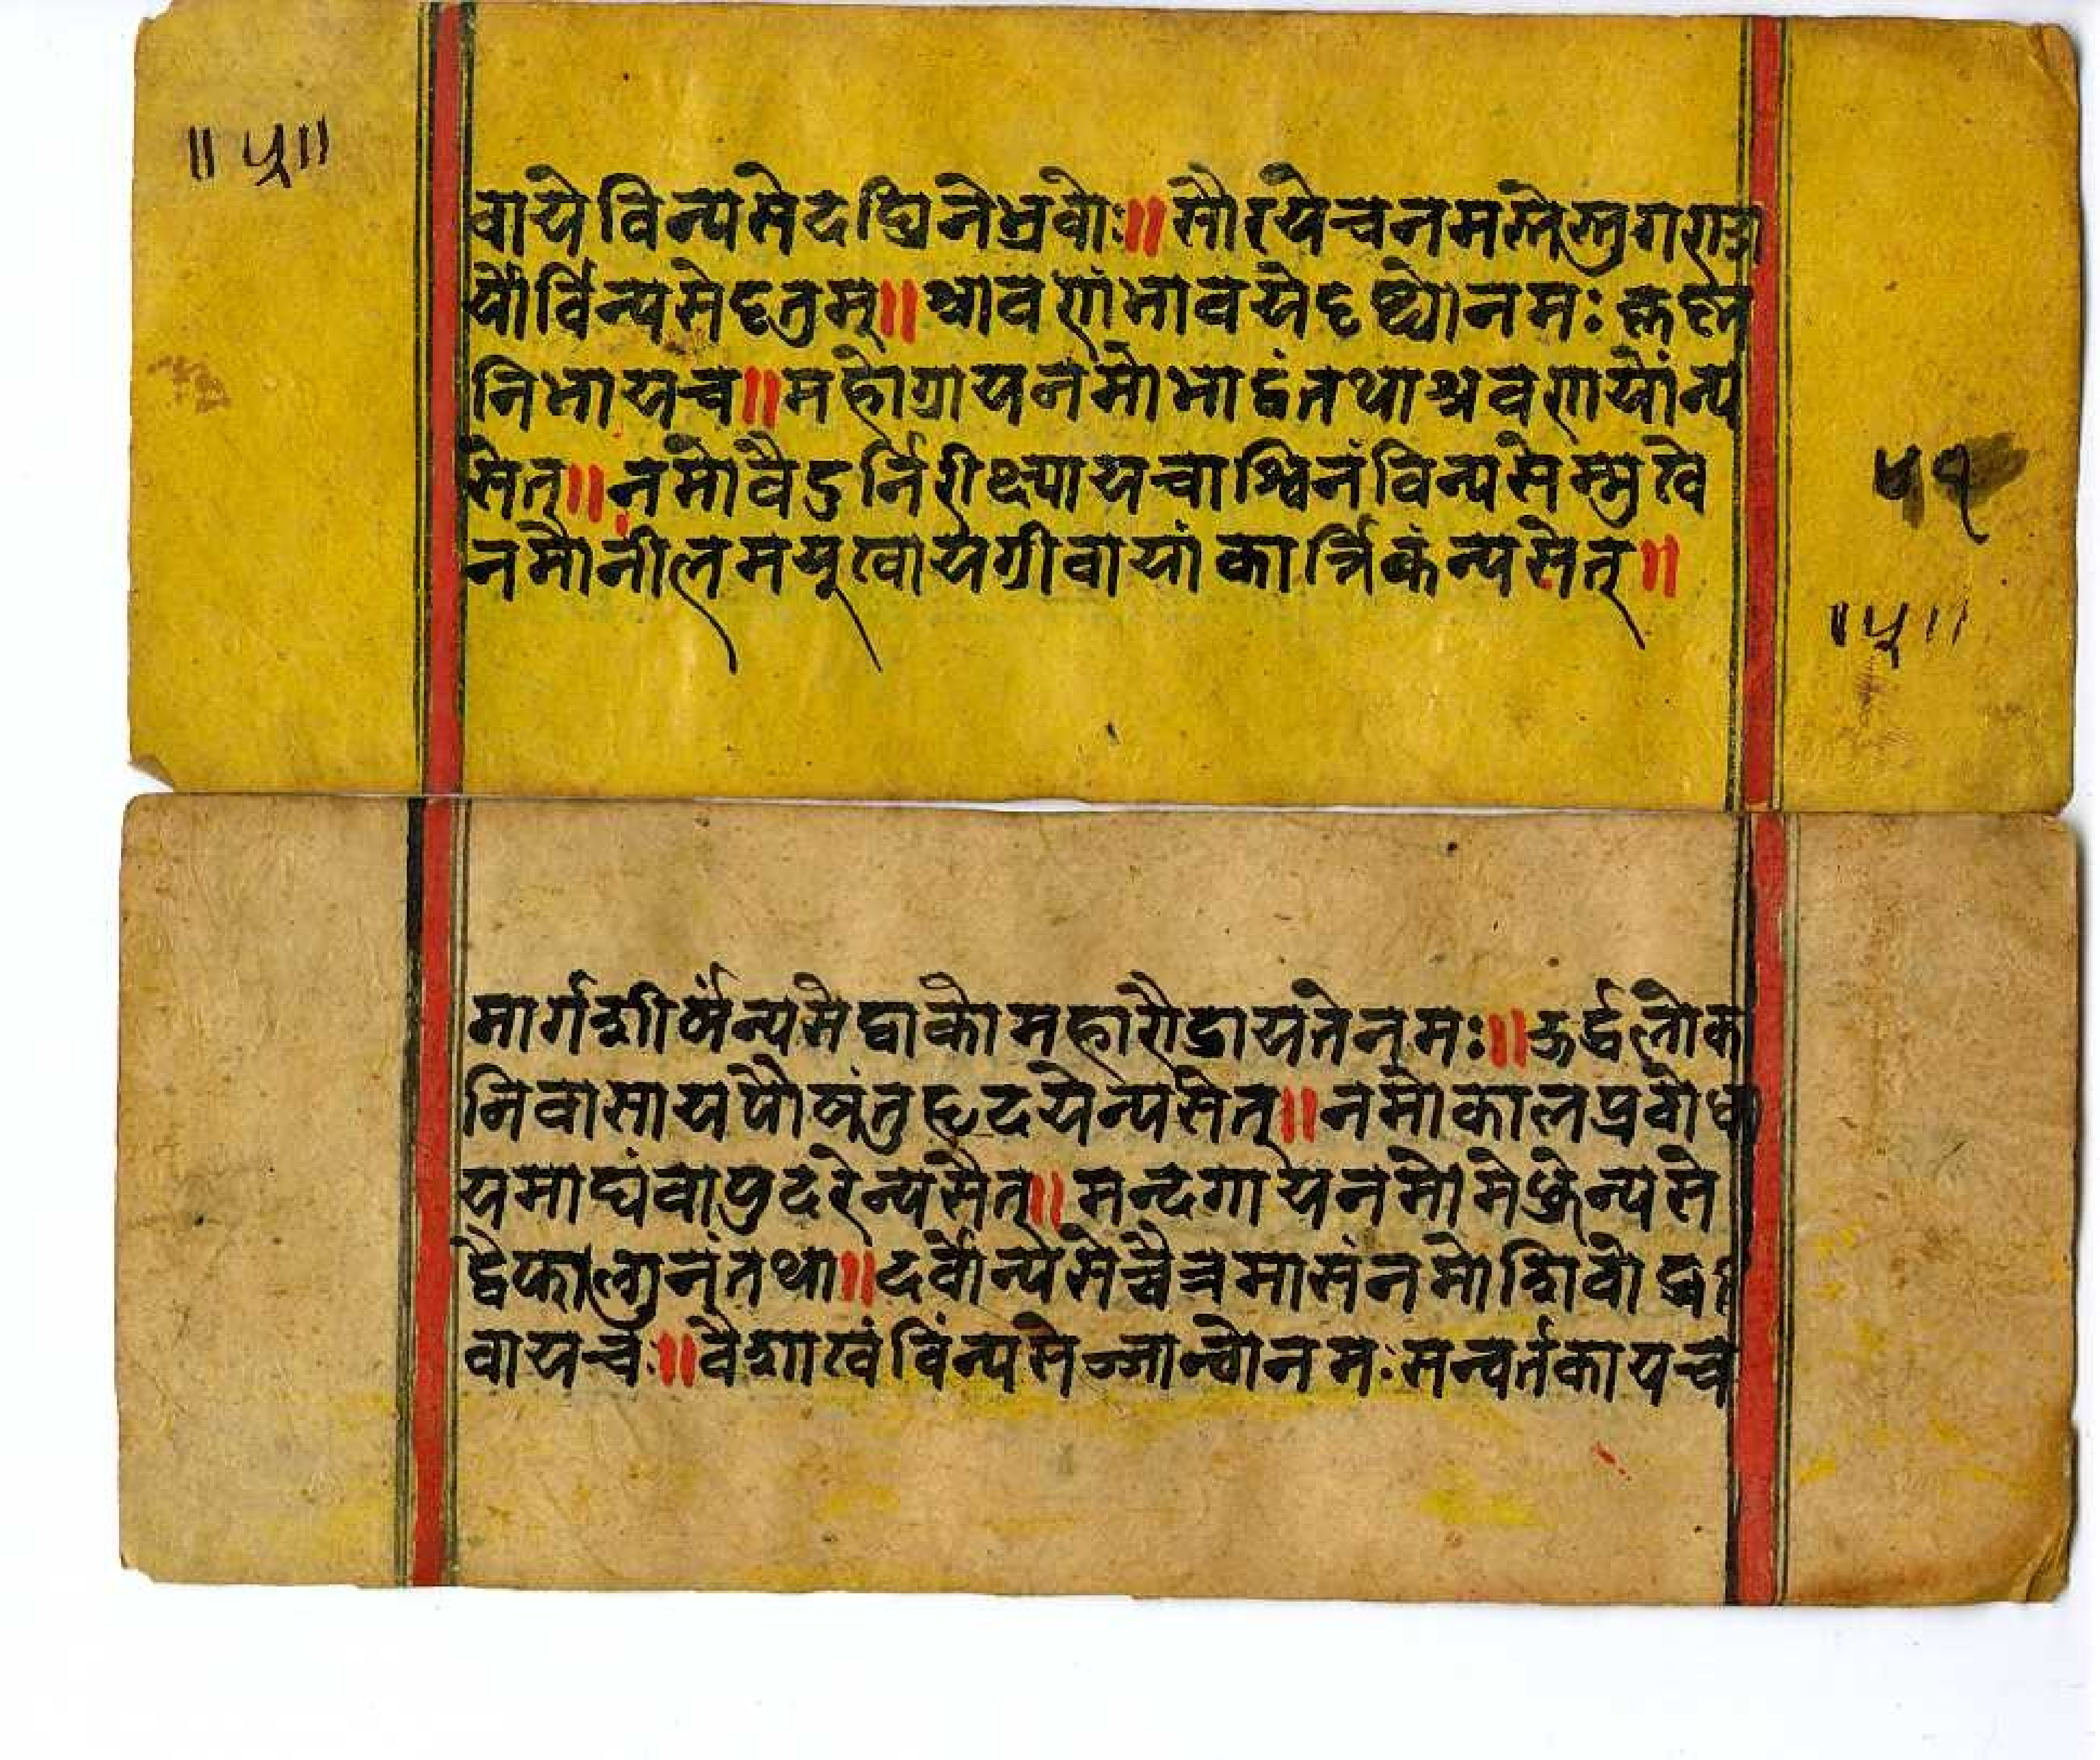 ॥ ५ ॥
वाये विन्यसेदश्विने भ्रवोः ॥ सौरये च नमस्तेस्तु गराडा
यों र्विन्यसेदृतुम् ॥ श्रावणं भावयेदृष्ट्यो नमः कृष्ण
निभाय च ॥ महोग्राय नमो भाद्रं तथा श्रवणयोंर्न्य
सेत् ॥ नमो वै दुर्निरीक्ष्याय चाश्विनं विन्यसेन्मुखे
नमो नीलमयूखाय ग्रीवायां कार्त्तिकं न्यसेत् ॥
५१
॥ ५ ॥
मार्गशीर्षं न्यसेद्वाको महारौद्राय ते नमः ॥ ऊर्द्धलोक
निवासाय पौषं तु हृदये न्यसेत् ॥ नमो कालप्रवोधा
य माघं वापुदरे न्यसेत् ॥ मन्दगाय नमो मेढ्रे न्यसे
द्वै फाल्गुनं तथा ॥ दर्वो न्यसेच्चैत्रमासं नमो शिवोद्भ
वाय च ॥ वैशाखं विन्यसेज्जान्वो नमः सन्वर्तकाय च